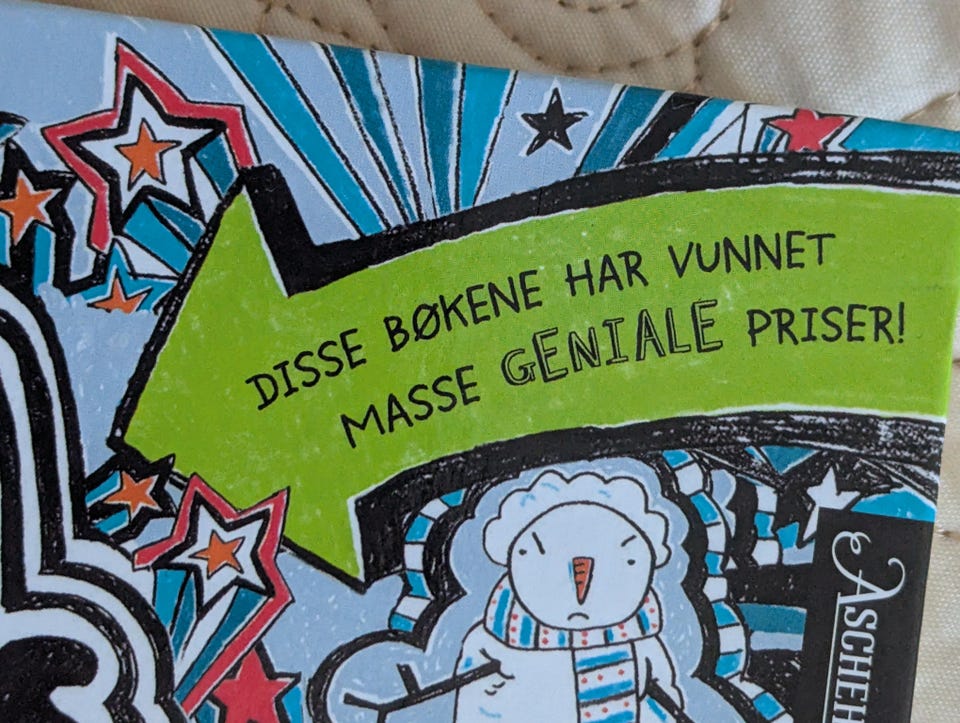 DISSE BØKENE HAR VUNNET
MASSE GENIALE PRISER!
ASCHEH